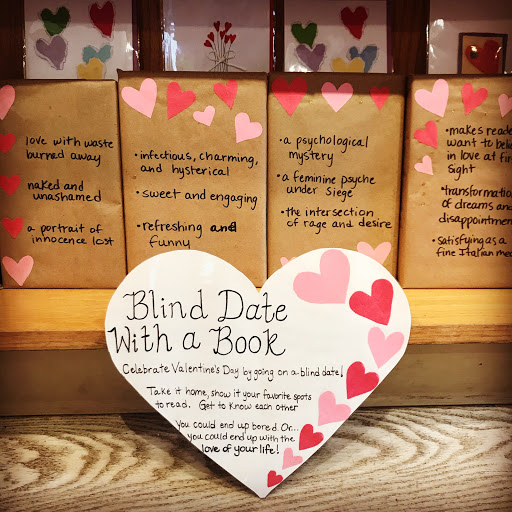 love with waste
burned away
naked and
unashamed
a portrait of
innocence lost
• infectious, charming,
and hysterical
• sweet and engaging
• refreshing and
funny
• a psychological
mystery
• a feminine psyche
under siege
• the intersection
of rage and desire
• makes reade
want to beli
in love at fir
sight
• transformatio
of dreams and
disappointmen
• satisfying as a
fine Italian me
Blind Date
With a Book
Celebrate Valentine's Day by going on a blind date!
Take it home, show it your favorite spots
to read. Get to know each other
You could end up bored. Or...
you could end up with the
love of your life!